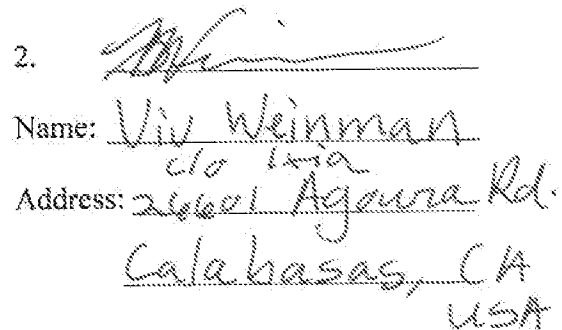 2.
Name: Viv Weinman
c/o Ixia
Address: 26601 Agoura Rd.
Calabasas, CA
USA